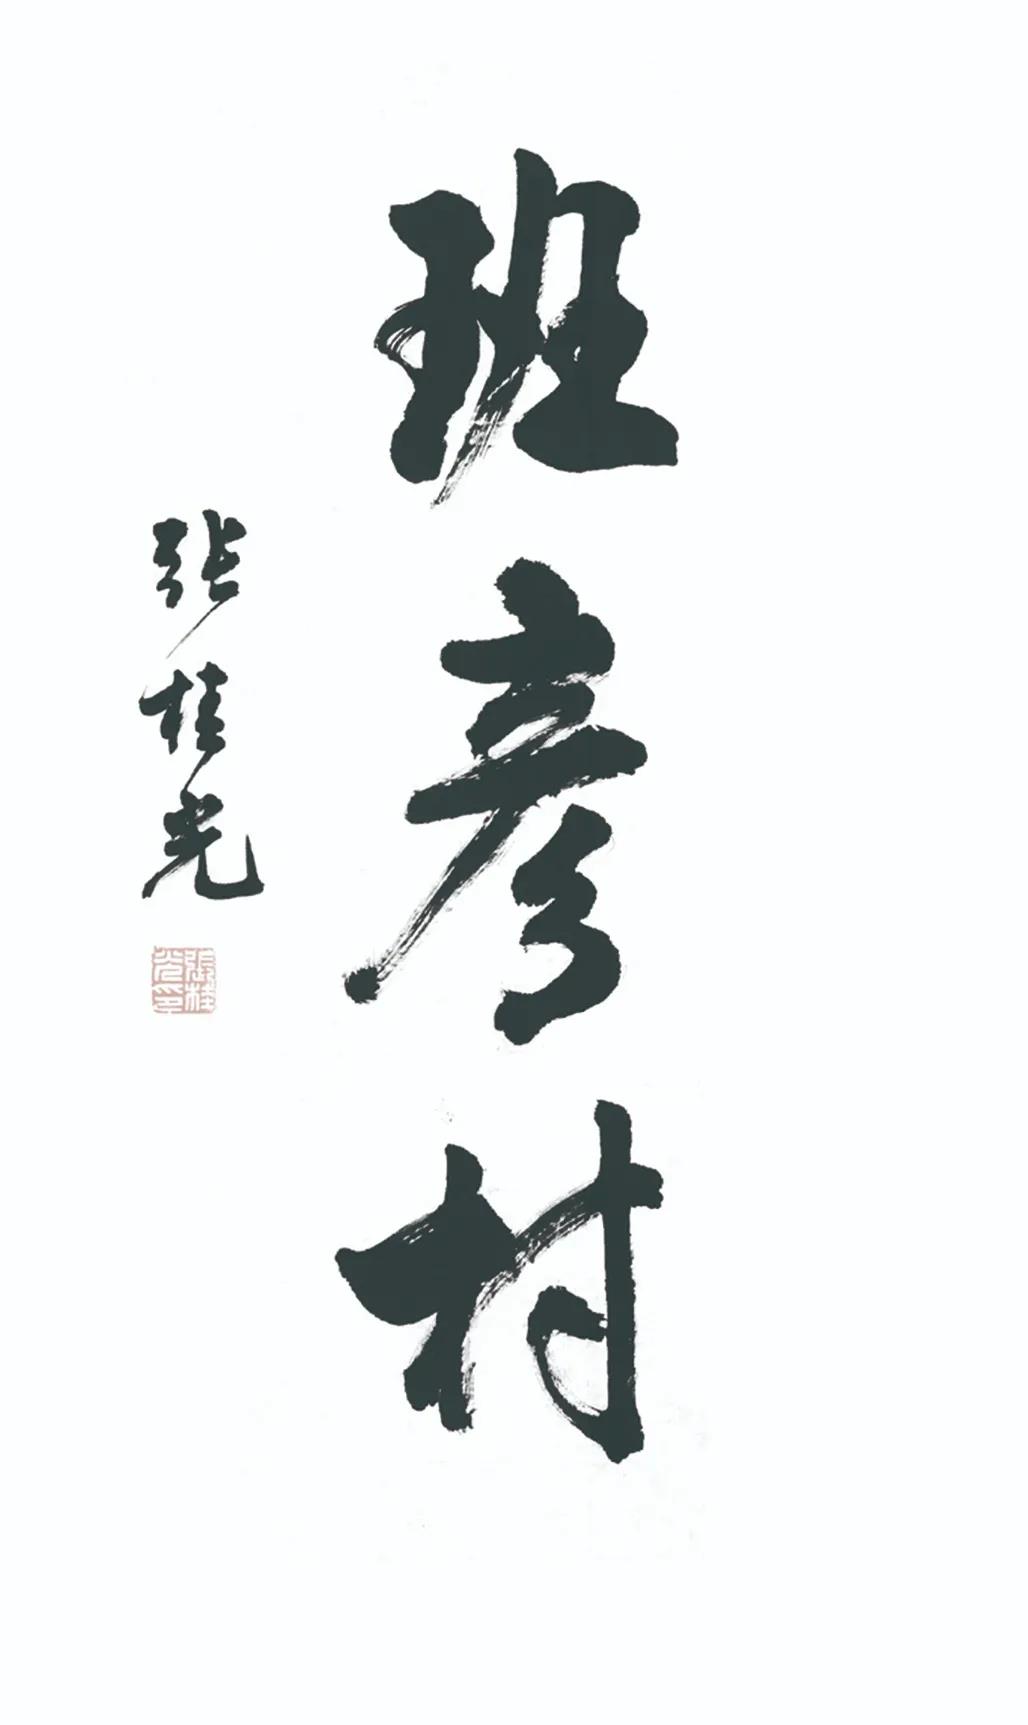 班彦村
张桂光
張桂光印